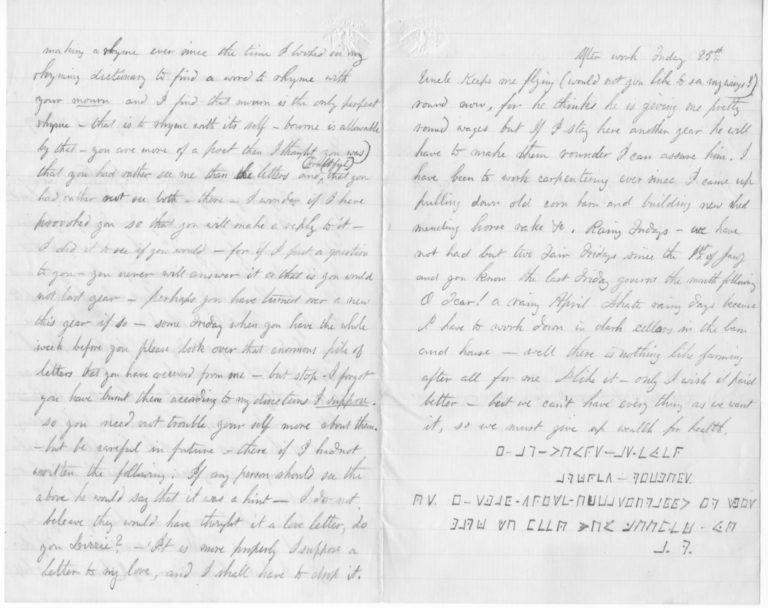 making a rhyme ever since the time I looked in my
rhyming dictionary to find a word to rhyme with
your mourn and I find that mourn is the only perfect
rhyme – that is to rhyme with its self – bourne is allowable
by that – you are more of a poet than I thought you was)
that you had rather see me than the letters and, that you
had rather not see both – there – I wonder if I have
provoked you so that you will make a reply to it –
I did it to see if you would – for if I put a question
to you – you never will answer it or that is you would
not last year – perhaps you have turned over a new
this year if so – some Friday when you have the whole
week before you please look over that enormous pile of
letters that you have received from me – but stop – I forgot
you have burnt them according to my directions I suppose.
so you need not trouble your self more about them.
– but be careful in future – there if I had not
written the following: If any person should see the
above he would say that it was a hint – I do not
beleave they would have thought it a love letter, do
you Lizzie? – It is more properly I suppose a
letter to my love, and I shall have to stop it.
After work Friday 25th
Uncle keeps me flying (would not you like to see my wings?)
round now, for he thinks he is giving me pretty
round wages but if I stay here another year he will
have to make them rounder I can assure him. I
have been to work carpentering ever since I came up
pulling down old corn barn and building new shed
mending horse rake &c. Rainy Fridays – we have
not had but two Fair Fridays since the 1st of Jany
and you know the last Friday governs the month following
O Dear! a rainy April I hate rainy days because
I have to work down in dark cellars in the barn
and house – well there is nothing like farming
after all for me I like it – only I wish it paid
better – but we can't have every thing as we want
it, so we must give up wealth for health.